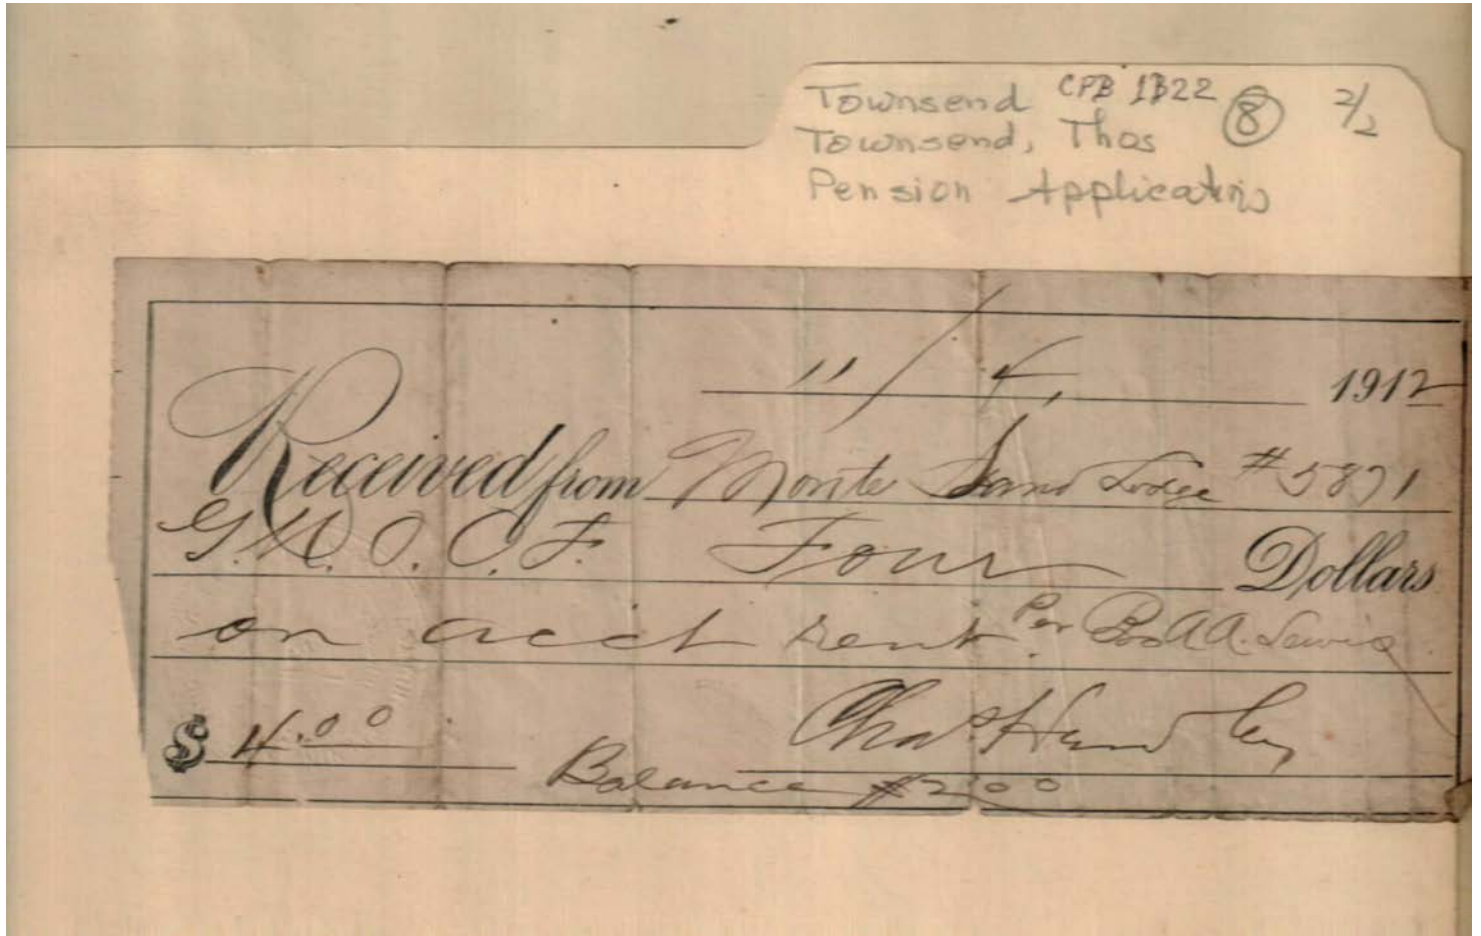 Townsend CPB 1B22 8 2/2
Townsend, Thos
Pension Applications
11/4, 1912
Received from Monte Sano Lodge #5871
G.U.O.O.F. Four Dollars
on acct rent. Per A. Lewis
$ 4.00 Chas Hund ley
Balance $2.00